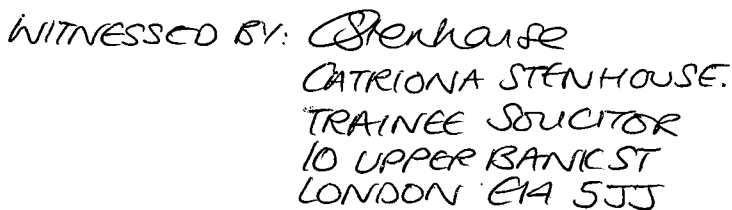 WITNESSED BY: CStenhouse
CATRIONA STENHOUSE.
TRAINEE SOLICITOR
10 UPPER BANK ST
LONDON E14 5JJ